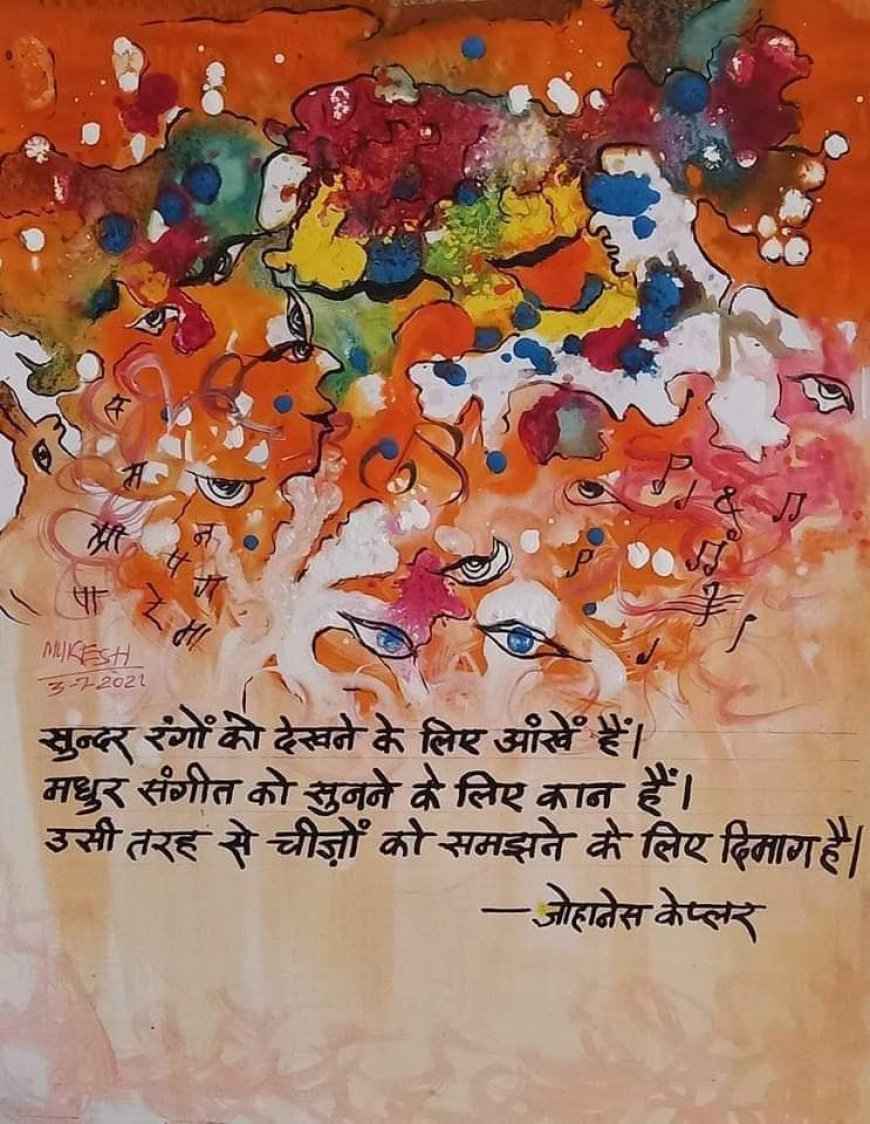 म
आ
न
प
ग
पा
रे
मा
MUKESH
3-7-2021
सुन्दर रंगों को देखने के लिए आंखें हैं।
मधुर संगीत को सुनने के लिए कान हैं।
उसी तरह से चीज़ों को समझने के लिए दिमाग है।
— जोहानेस केप्लर